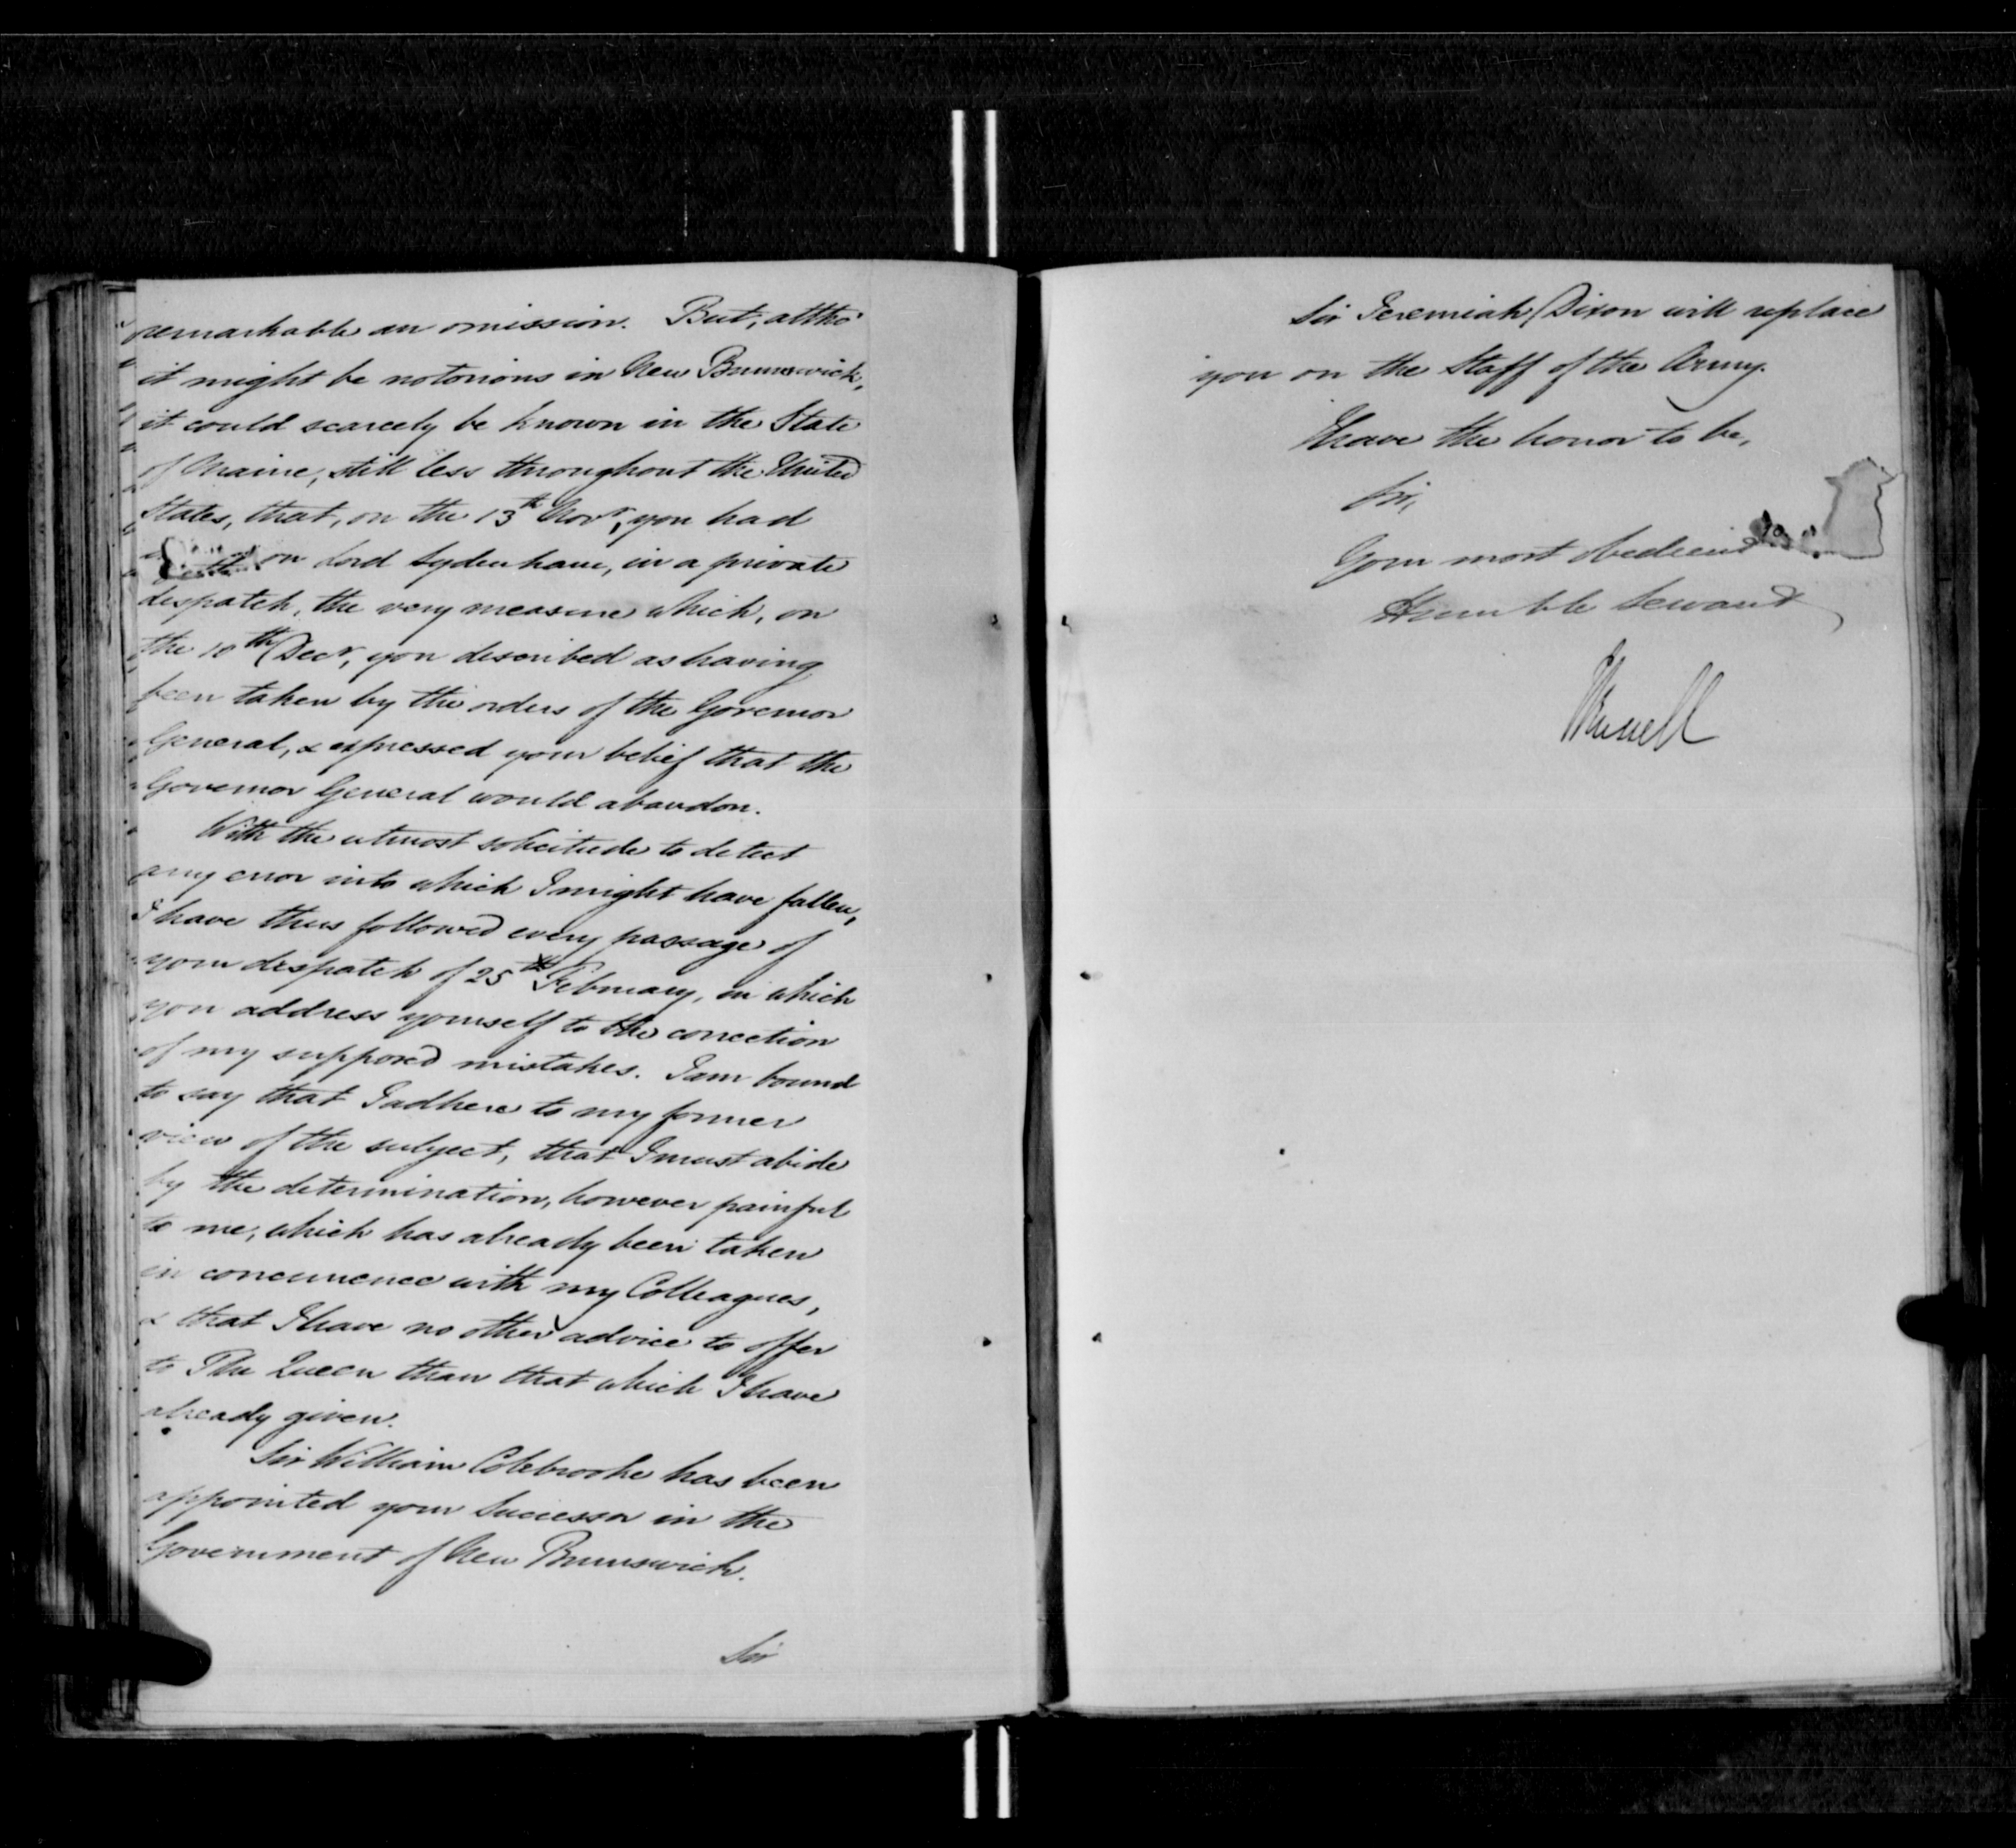 remarkable an omission. But, altho'
it might be notorious in New Brunswick,
it could scarcely be known in the State
of Maine, still less throughout the United
States, that, on the 13th Novr, you had
on Lord Sydenham, in a private
despatch, the very measure which, on
the 10th Decr, you described as having
been taken by the orders of the Governor
General, & expressed your belief that the
Governor General would abandon.
With the utmost solicitude to detect
any error into which I might have fallen,
I have thus followed every passage of
your despatch of 25th February, in which
you address yourself to the correction
of my supposed mistakes. I am bound
to say that I adhere to my former
view of the subject, that I must abide
by the determination, however painful
to me, which has already been taken
in concurrence with my Colleagues,
& that I have no other advice to offer
to The Queen than that which I have
already given.
Sir William Colebrooke has been
appointed your Successor in the
Government of New Brunswick.
Sir
Sir Jeremiah Dixon will replace
you on the Staff of the Army.
I have the honor to be,
Sir,
Your most obedient
Humble Servant
JRussell